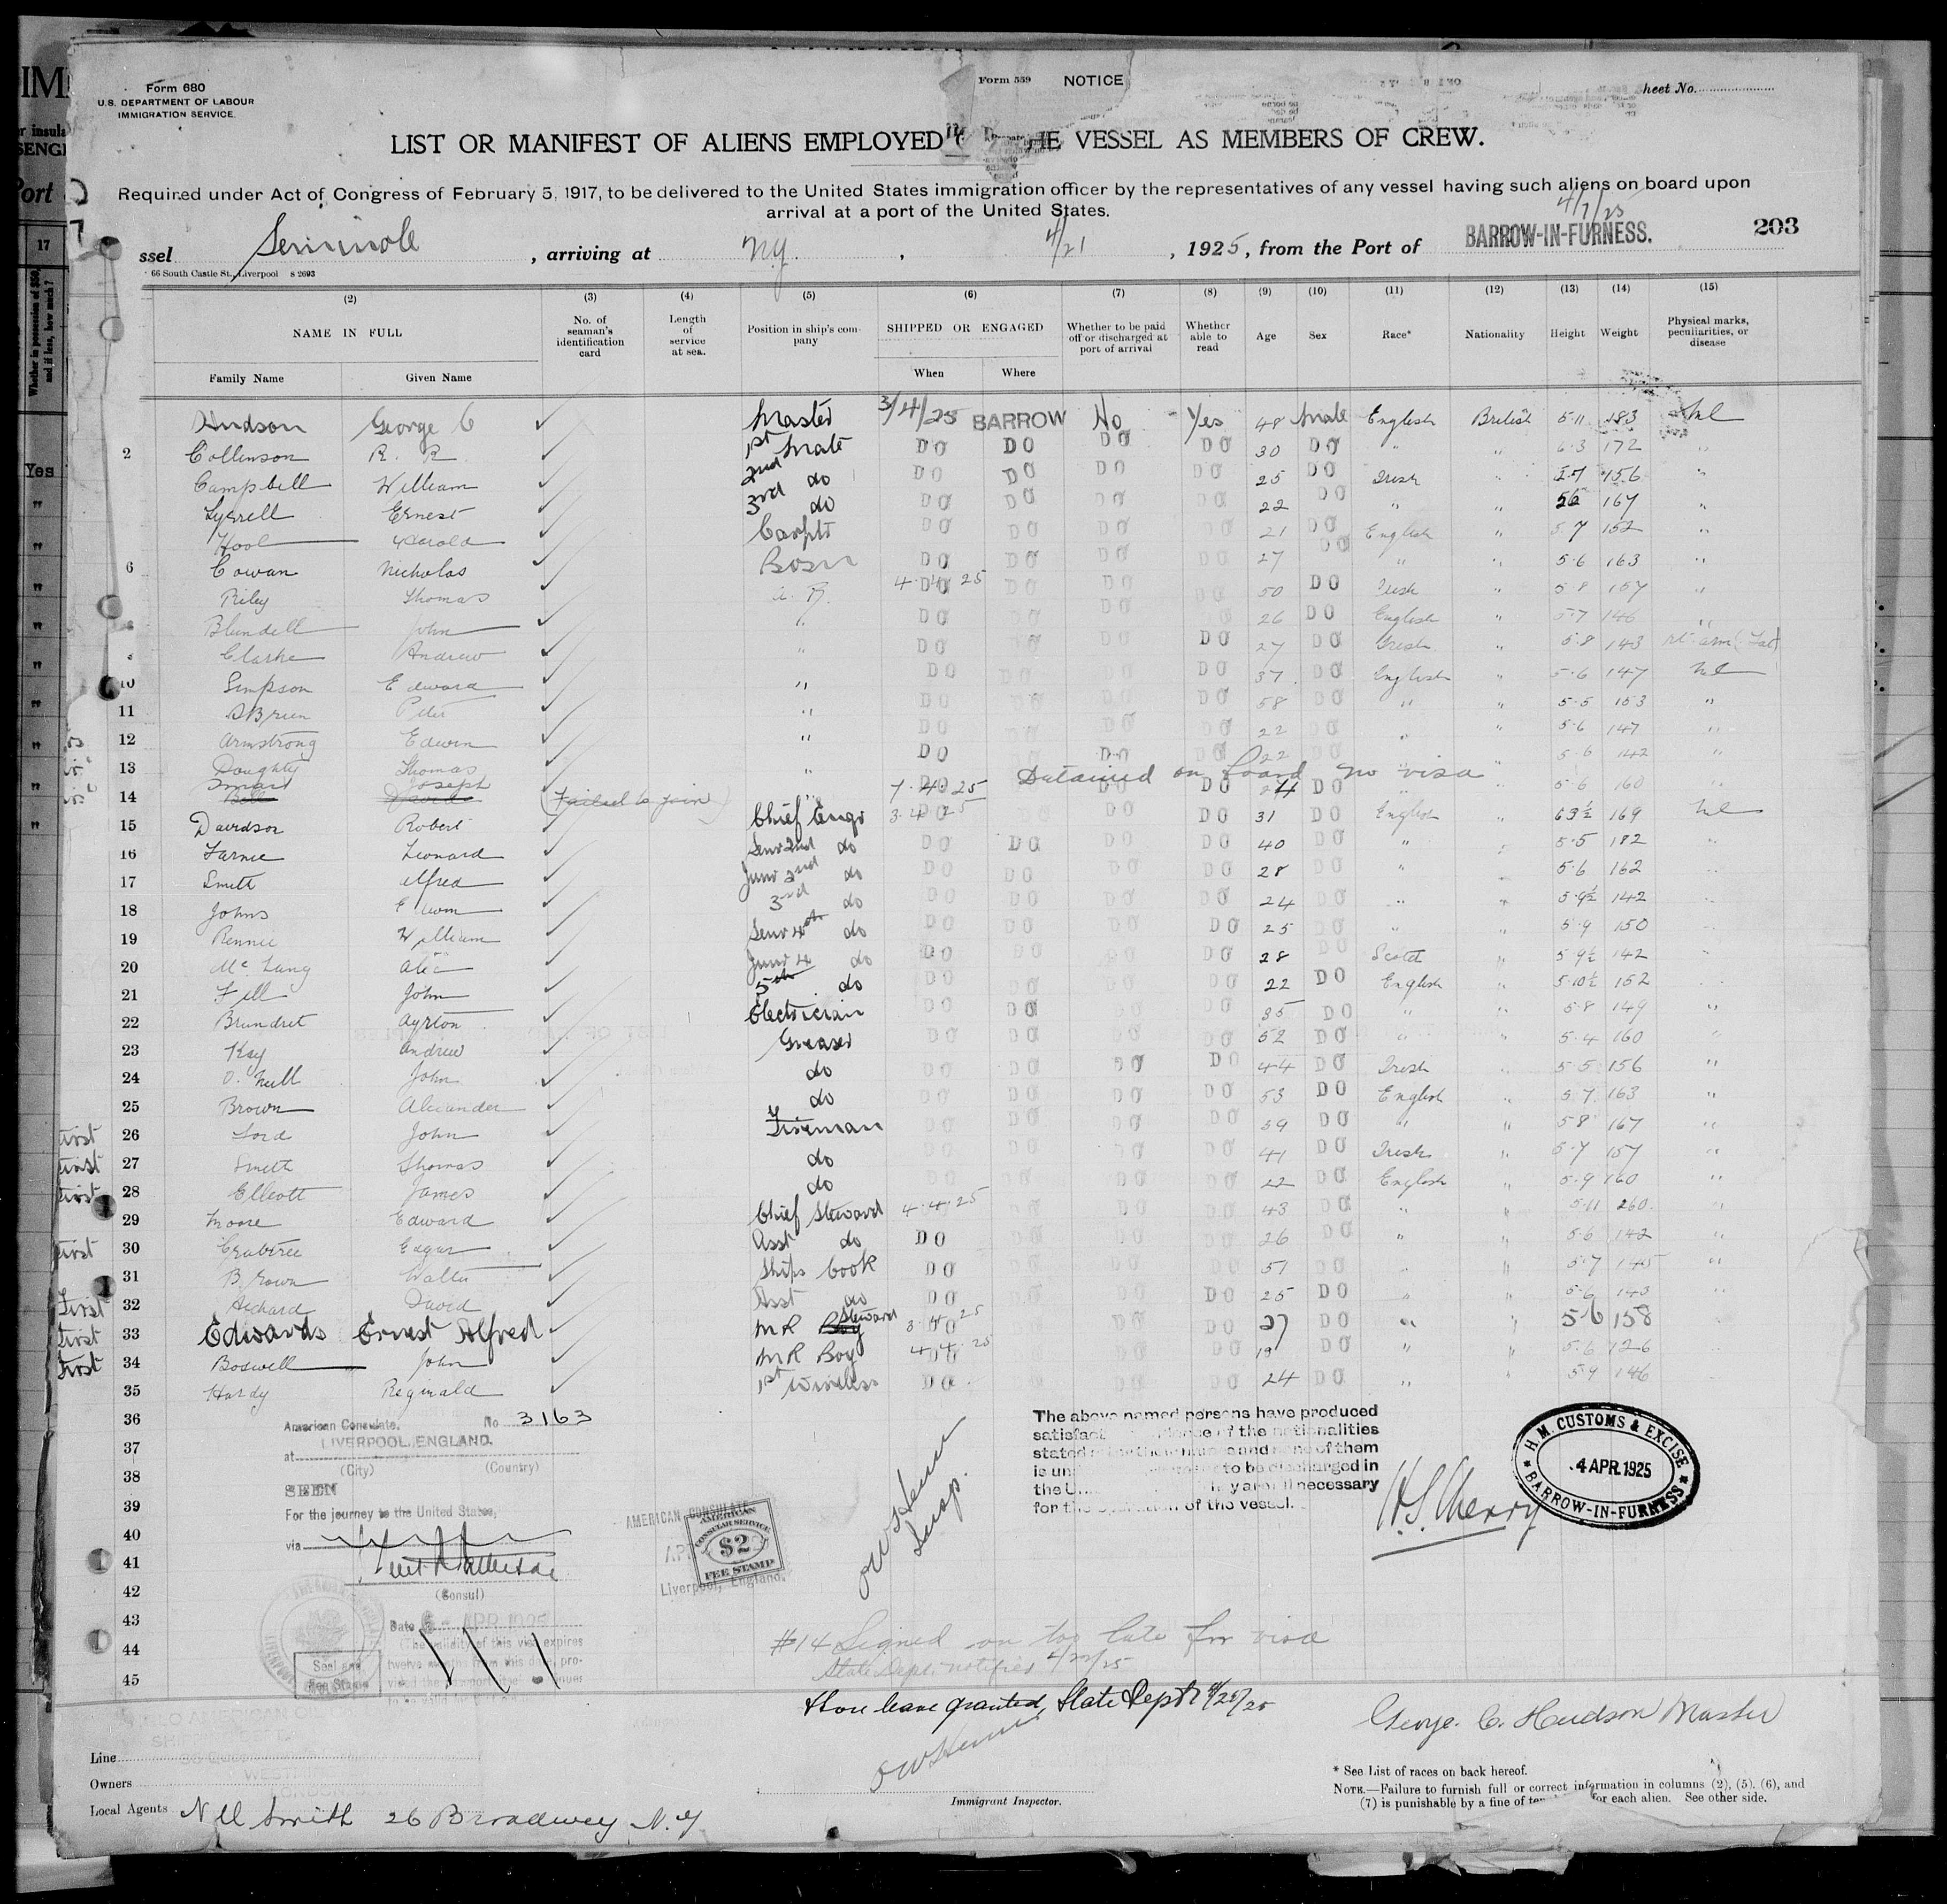 Form 680
U.S. DEPARTMENT OF LABOUR
IMMIGRATION SERVICE.
Form 559 NOTICE
heet No.
LIST OR MANIFEST OF ALIENS EMPLOYED HE VESSEL AS MEMBERS OF CREW.
Required under Act of Congress of February 5, 1917, to be delivered to the United States immigration officer by the representatives of any vessel having such aliens on board upon
arrival at a port of the United States.
4/7/25
203
ssel Seminole, arriving at N.Y. , 4/21, 1925, from the Port of BARROW-IN-FURNESS.
66 South Castle St., Liverpool S 2693
(2) (3) (4) (5) (6) (7) (8) (9) (10) (11) (12) (13) (14) (15)
NAME IN FULL No. of seaman's identification card Length of service at sea. Position in ship's company SHIPPED OR ENGAGED Whether to be paid off or discharged at port of arrival Whether able to read Age Sex Race* Nationality Height Weight Physical marks, peculiarities, or disease
Family Name Given Name When Where
Hudson George C Master 3/4/25 BARROW No Yes 48 Male English British 5.11 183 Nil
2 Collinson R. R. 1st Mate DO DO DO DO 30 DO " " 6.3 172 "
Campbell William 2nd do DO DO DO DO 25 DO Irish " 5.7 156 "
Lyrrell Ernest 3rd do DO DO DO DO 22 DO " " 56 167 "
Hool Harold Carptr DO DO DO DO 21 DO English " 5.7 152 "
6 Cowan Nicholas Bosn DO DO DO DO 27 DO " " 5.6 163 "
Riley Thomas 4.4.25 DO DO DO 50 DO Irish " 5.8 157 "
Blundell John DO DO 26 DO English " 5.7 146 "
Clarke Andrew " DO DO DO DO 27 DO Irish " 5.8 143 rt arm (Tat)
10 Simpson Edward " DO DO DO DO 37 DO English " 5.6 147 Nil
11 OBrien Peter " DO DO DO DO 58 DO " " 5.5 153 "
12 Armstrong Edwin " DO DO DO DO 22 DO " " 5.6 147 "
13 Doughty Thomas " DO DO DO 22 DO " 5.6 142 "
Detained on board no visa
14 Smart Joseph (Failed to join) " 7.4.25 DO DO 24 DO " " 5.6 160
15 Davidson Robert Chief Engr 3.4.25 DO DO 31 DO English " 63½ 169 Nil
16 Farnie Leonard Senr 2nd do DO DO DO DO 40 DO " " 5.5 182 "
17 Smith Alfred Junr 2nd do DO DO DO DO 28 DO " " 5.6 162 "
18 Johns Edwin 3rd do DO DO DO DO 24 DO " " 5.9½ 142
19 Rennie William Senr 4th do DO DO DO DO 25 DO " " 5.9 150
20 Junr 4 do DO DO DO DO 28 DO Scotch " 5.9½ 142
21 Fell John 5th do DO DO DO DO 22 DO English " 5.10½ 152
22 Brundret Ayrton Electrician DO DO DO DO 35 DO " " 5.8 149 "
23 Kay Andrew Greaser DO DO DO DO 52 DO " " 5.4 160 "
24 O. Neill John do DO DO DO DO 44 DO Irish " 5.5 156 "
25 Brown Alexander do DO DO DO DO 53 DO English " 5.7 163 "
First 26 Lord John Fireman DO DO DO DO 39 DO " " 5.8 167 "
First 27 Smith Thomas do DO DO DO DO 41 DO Irish " 5.7 157 "
First 28 Elliott James do DO DO DO DO 22 DO English " 5.9 160 "
29 Moore Edward Chief Steward 4.4.25 DO DO DO 43 DO " " 5.11 260 "
First 30 Crabtree Edgar Asst do DO DO DO DO 26 DO " " 5.6 142 "
31 Brown Walter Ships Cook DO DO DO DO 51 DO " " 5.7 145 "
First 32 Richard David Asst do DO DO DO DO 25 DO " " 5.6 143
First 33 Edwards Ernest Alfred M R Boy Steward 3.4.25 DO DO DO 27 DO " " 5.6 158
First 34 Boswell John M R Boy 4.4.25 DO DO DO 19 DO " " 5.6 126
35 Hardy Reginald 1st Wireless DO DO DO DO 24 DO " " 5.9 146
36
37
38
39
40
41
42
43
44
45
American Consulate. No 3163
at LIVERPOOL, ENGLAND.
(City) (Country)
SEEN
For the journey to the United States,
via
(Consul)
Date APR 1925
The validity of this visa expires
twelve months from this date, pro-
Seal and
Fee Stamp
AMERICAN CONSULATE
AMERICAN
CONSULAR SERVICE
$2
FEE STAMP
Liverpool, England.
Insp.
The above named persons have produced
satisfac of the nationalities
stated and of them
is un to be discharged in
the U. necessary
for the of the vessel.
H.S. Cherry
H.M. CUSTOMS & EXCISE
4 APR 1925
BARROW-IN-FURNESS
#14 Signed on too late for visa
State Dept. notified 4/22/25
Shore leave granted, State Dept 4/25/25
George. C. Hudson Master
Line
Owners
Local Agents N W Smith 26 Broadway N.Y
Immigrant Inspector.
* See List of races on back hereof.
NOTE.—Failure to furnish full or correct information in columns (2), (5), (6), and
(7) is punishable by a fine of ten for each alien. See other side.